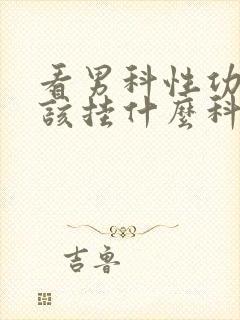 看男科性功
該挂什麼科
吉魯